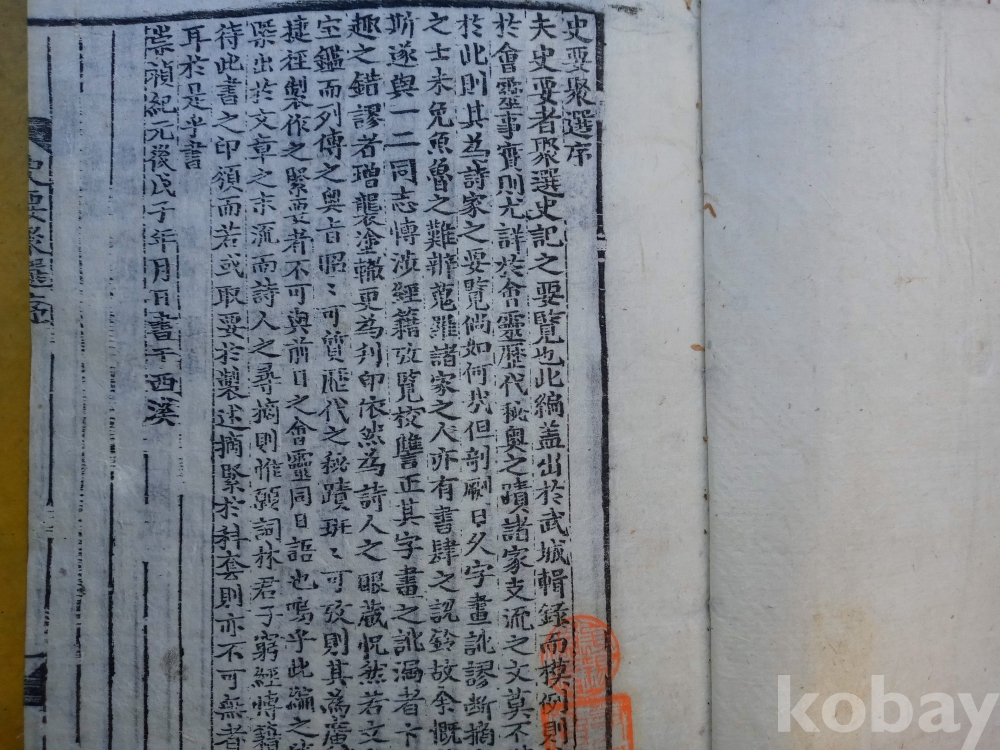 史要聚選序
夫史要者聚選史記之要覽也此編盖出於武城輯錄而模例則
於會靈事實則尤詳於會靈歷代秘奧之蹟諸家支流之文莫不
於此則其為詩家之要覽倘如何哉但剞劂日久字畫訛謬斷摘
之士未免魚魯之難辨蒐羅諸家之人亦有書肆之說鈴故余慨
斯遂與一二同志博涉經籍攷覽校讐正其字畫之訛漏者下
趣之錯謬者增襲塗轍更為刋印依然為詩人之眼蔵怳然若文
宝鑑而列傳之奧旨昭〻可質歷代之秘蹟班〻可攷則其為廣
捷徑製作之緊要者不可與前日之會靈同日語也嗚乎此編之
槩出於文章之末流而詩人之尋摘則惟願詞林君子窮經博籍
待此書之印頒而若或取要於製述摘緊於科套則亦不可無者
耳於是乎書
崇禎紀元後戊子年月日書于西溪
史要聚選序
kobay